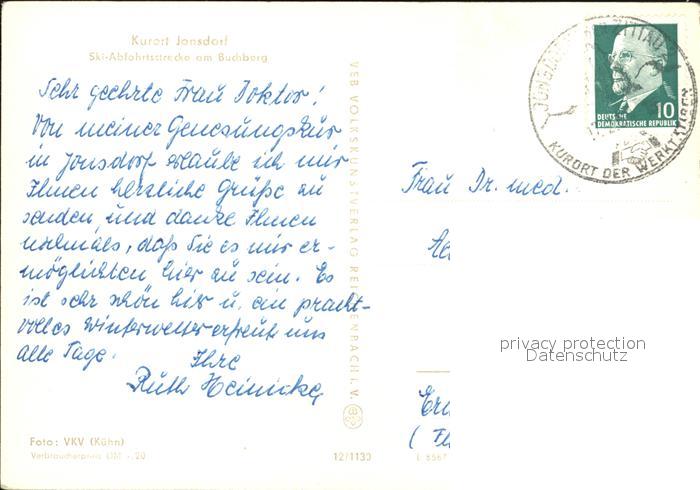 Kurort Jonsdorf
Ski-Abfahrtsstrecke am Buchberg
Sehr geehrte Frau Doktor!
Von meiner Genesungskur
in Jonsdorf erlaube ich mir
Ihnen herzliche Grüße zu
senden, und danke Ihnen
nochmals, daß Sie es mir er-
möglichten hier zu sein. Es
ist sehr schön hier u. ein pracht-
volles Winterwetter erfreut uns
alle Tage.
Ihre
Ruth Heinicke
Foto: VKV (Kühn)
Verbraucherpreis DM -.20
12/1130
VEB VOLKSKUNSTVERLAG REICHENBACH I. V.
10
DEUTSCHE
DEMOKRATISCHE REPUBLIK
ZITTAU
KURORT DER WERKTÄTIGEN
Frau Dr. med.
privacy protection
Datenschutz